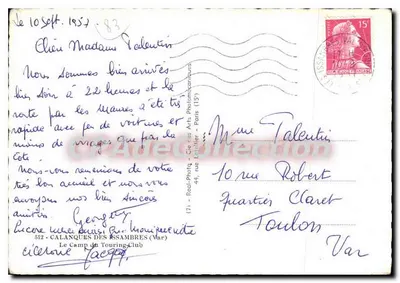 le 10 sept. 1957
(83)
Chère Madame Talentin
Nous sommes bien arrivés
hier soir à 22 heures et la
route par les Maures a été très
rapide avec peu de voitures et
moins de virages que par la
côte.
Nous vous remercions de votre
très bon accueil et nous vous
envoyons nos bien sincères
amitiés. Georgette
Encore merci ainsi qu'à Monique
812 - CALANQUES DES ISSAMBRES (Var)
Le Camp du Touring-Club
Jacques
15F
Mme Talentin
10 rue Robert
Quartier Claret
Toulon
Var